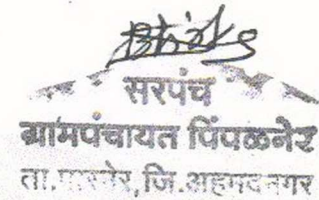 सरपंच
ग्रामपंचायत पिंपळनेर
ता.पारनेर, जि.अहमदनगर